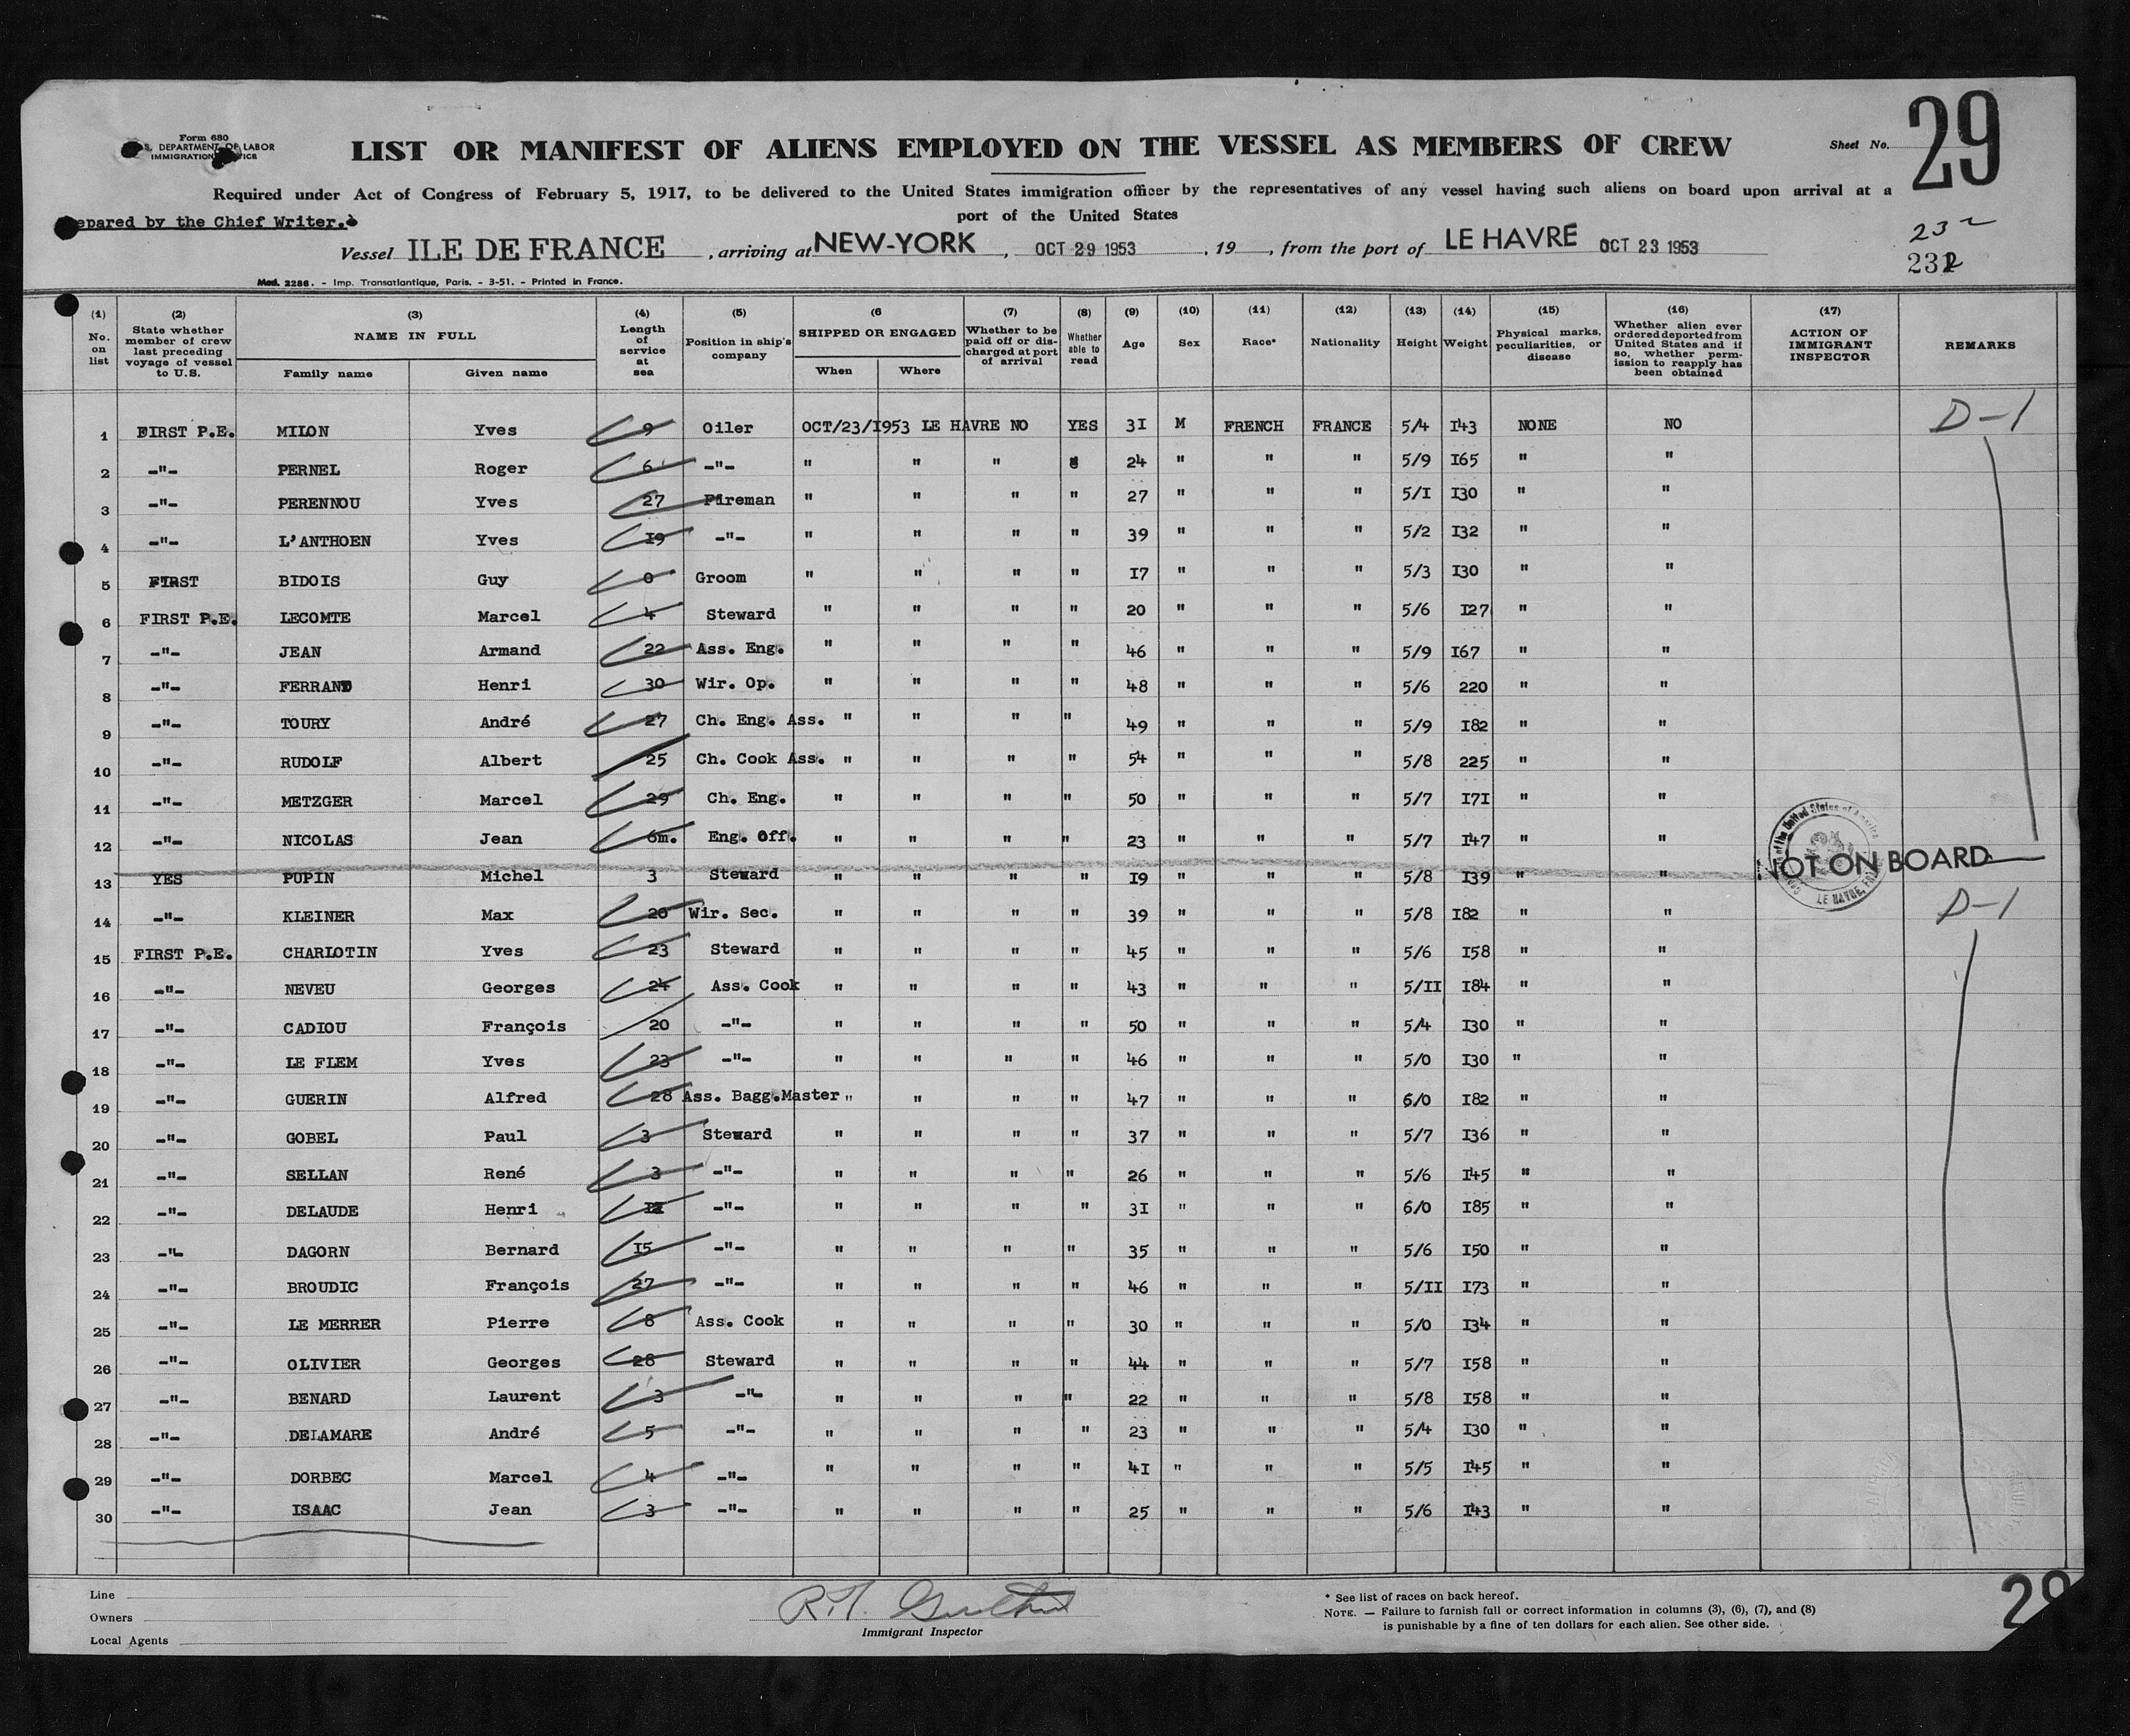 Form 680
S. DEPARTMENT OF LABOR
IMMIGRATION SERVICE
LIST OR MANIFEST OF ALIENS EMPLOYED ON THE VESSEL AS MEMBERS OF CREW
Sheet No. 29
Required under Act of Congress of February 5, 1917, to be delivered to the United States immigration officer by the representatives of any vessel having such aliens on board upon arrival at a
port of the United States
epared by the Chief Writer.
232
Vessel ILE DE FRANCE, arriving at NEW-YORK, OCT 29 1953, 19, from the port of LE HAVRE OCT 23 1953
232
Mod. 2286. - Imp. Transatlantique, Paris. - 3-51. - Printed in France.
(1) No. on list (2) State whether member of crew last preceding voyage of vessel to U.S. (3) NAME IN FULL Family name Given name (4) Length of service at sea (5) Position in ship's company (6 SHIPPED OR ENGAGED When Where (7) Whether to be paid off or discharged at port of arrival (8) Whether able to read (9) Age (10) Sex (11) Race* (12) Nationality (13) Height (14) Weight (15) Physical marks, peculiarities, or disease (16) Whether alien ever ordered deported from United States and if so, whether permission to reapply has been obtained (17) ACTION OF IMMIGRANT INSPECTOR REMARKS
1 FIRST P.E. MILON Yves 9 Oiler OCT/23/1953 LE HAVRE NO YES 31 M FRENCH FRANCE 5/4 143 NONE NO D-1
2 -"- PERNEL Roger 6 -"- " " " " 24 " " " 5/9 165 " "
3 -"- PERENNOU Yves 27 Fireman " " " " 27 " " " 5/1 130 " "
4 -"- L'ANTHOEN Yves 19 -"- " " " " 39 " " " 5/2 132 " "
5 FIRST BIDOIS Guy 0 Groom " " " " 17 " " " 5/3 130 " "
6 FIRST P.E. LECOMTE Marcel 4 Steward " " " " 20 " " " 5/6 127 " "
7 -"- JEAN Armand 22 Ass. Eng. " " " " 46 " " " 5/9 167 " "
8 -"- FERRAND Henri 30 Wir. Op. " " " " 48 " " " 5/6 220 " "
9 -"- TOURY André 27 Ch. Eng. Ass. " " " " 49 " " " 5/9 182 " "
10 -"- RUDOLF Albert 25 Ch. Cook Ass. " " " " 54 " " " 5/8 225 " "
11 -"- METZGER Marcel 29 Ch. Eng. " " " " 50 " " " 5/7 171 " "
12 -"- NICOLAS Jean 6m. Eng. Off. " " " " 23 " " " 5/7 147 " "
13 YES PUPIN Michel 3 Steward " " " " 19 " " " 5/8 139 " " NOT ON BOARD
14 -"- KLEINER Max 20 Wir. Sec. " " " " 39 " " " 5/8 182 " " D-1
15 FIRST P.E. CHARLOTIN Yves 23 Steward " " " " 45 " " " 5/6 158 " "
16 -"- NEVEU Georges 24 Ass. Cook " " " " 43 " " " 5/11 184 " "
17 -"- CADIOU François 20 -"- " " " " 50 " " " 5/4 130 " "
18 -"- LE FLEM Yves 23 -"- " " " " 46 " " " 5/0 130 " "
19 -"- GUERIN Alfred 28 Ass. Bagg.Master " " " " 47 " " " 6/0 182 " "
20 -"- GOBEL Paul 3 Steward " " " " 37 " " " 5/7 136 " "
21 -"- SELLAN René 3 -"- " " " " 26 " " " 5/6 145 " "
22 -"- DELAUDE Henri -"- " " " " 31 " " " 6/0 185 " "
23 -"- DAGORN Bernard 15 -"- " " " " 35 " " " 5/6 150 " "
24 -"- BROUDIC François 27 -"- " " " " 46 " " " 5/11 173 " "
25 -"- LE MERRER Pierre 8 Ass. Cook " " " " 30 " " " 5/0 134 " "
26 -"- OLIVIER Georges 28 Steward " " " " 44 " " " 5/7 158 " "
27 -"- BENARD Laurent 3 -"- " " " " 22 " " " 5/8 158 " "
28 -"- DELAMARE André 5 -"- " " " " 23 " " " 5/4 130 " "
29 -"- DORBEC Marcel 4 -"- " " " " 41 " " " 5/5 145 " "
30 -"- ISAAC Jean 3 -"- " " " " 25 " " " 5/6 143 " "
Line
Owners
Local Agents
Immigrant Inspector
* See list of races on back hereof.
NOTE. — Failure to furnish full or correct information in columns (3), (6), (7), and (8)
is punishable by a fine of ten dollars for each alien. See other side.
29